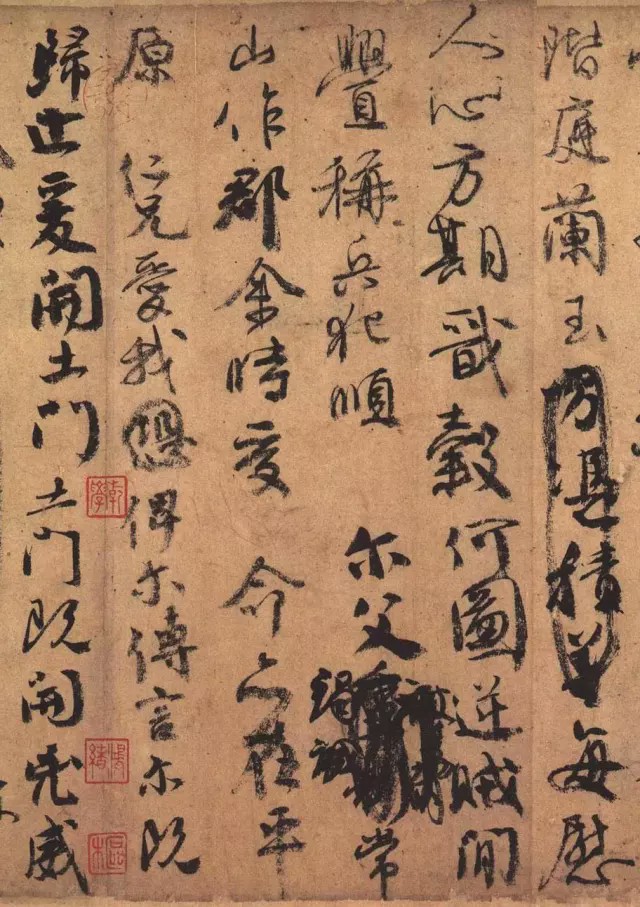 階庭蘭玉方憑積善每慰
人心方期戩穀何圖逆賊閒
釁稱兵犯順 尔父竭誠常
山作郡余時受 命亦在平
原 仁兄愛我恐俾尔傳言尔既
歸止爰開土門土門既開兇威